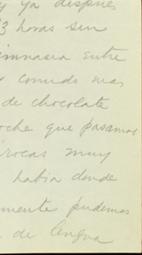 y ya después
3 horas sin
gimnasia entre
y comida mas
de chocolate
oche que pasamos
rocas muy
habia donde
mente pudimos
de lengua